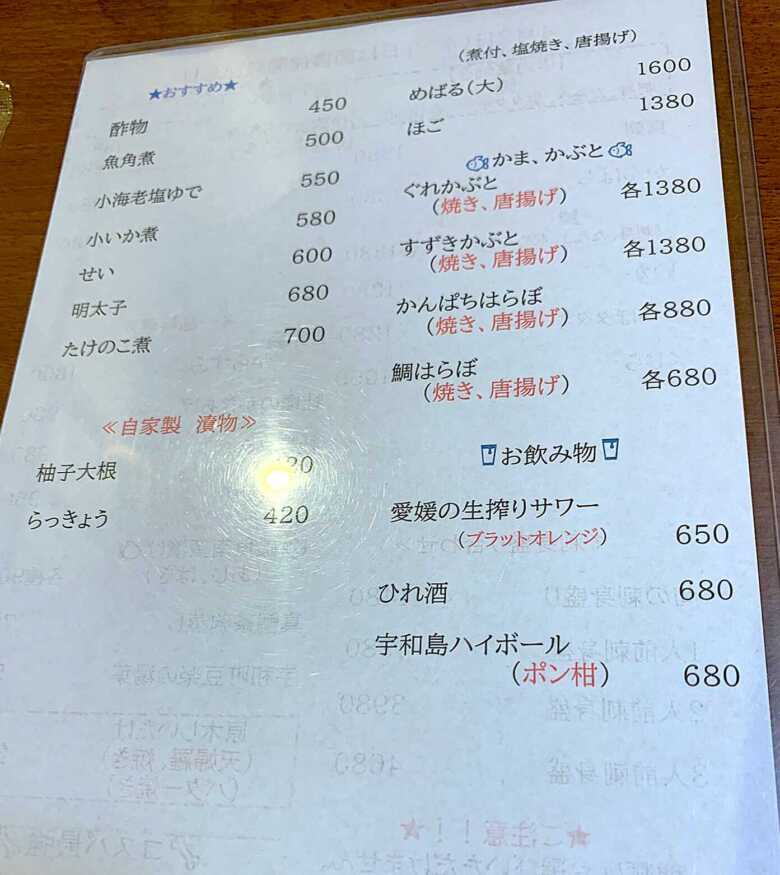 ★おすすめ★
酢物 450
魚角煮 500
小海老塩ゆで 550
小いか煮 580
せい 600
明太子 680
たけのこ煮 700
≪自家製 漬物≫
柚子大根 20
らっきょう 420
(煮付、塩焼き、唐揚げ)
めばる(大) 1600
ほご 1380
かま、かぶと
ぐれかぶと
(焼き、唐揚げ) 各1380
すずきかぶと
(焼き、唐揚げ) 各1380
かんぱちはらぼ
(焼き、唐揚げ) 各880
鯛はらぼ
(焼き、唐揚げ) 各680
お飲み物
愛媛の生搾りサワー
(ブラットオレンジ) 650
ひれ酒 680
宇和島ハイボール
(ポン柑) 680